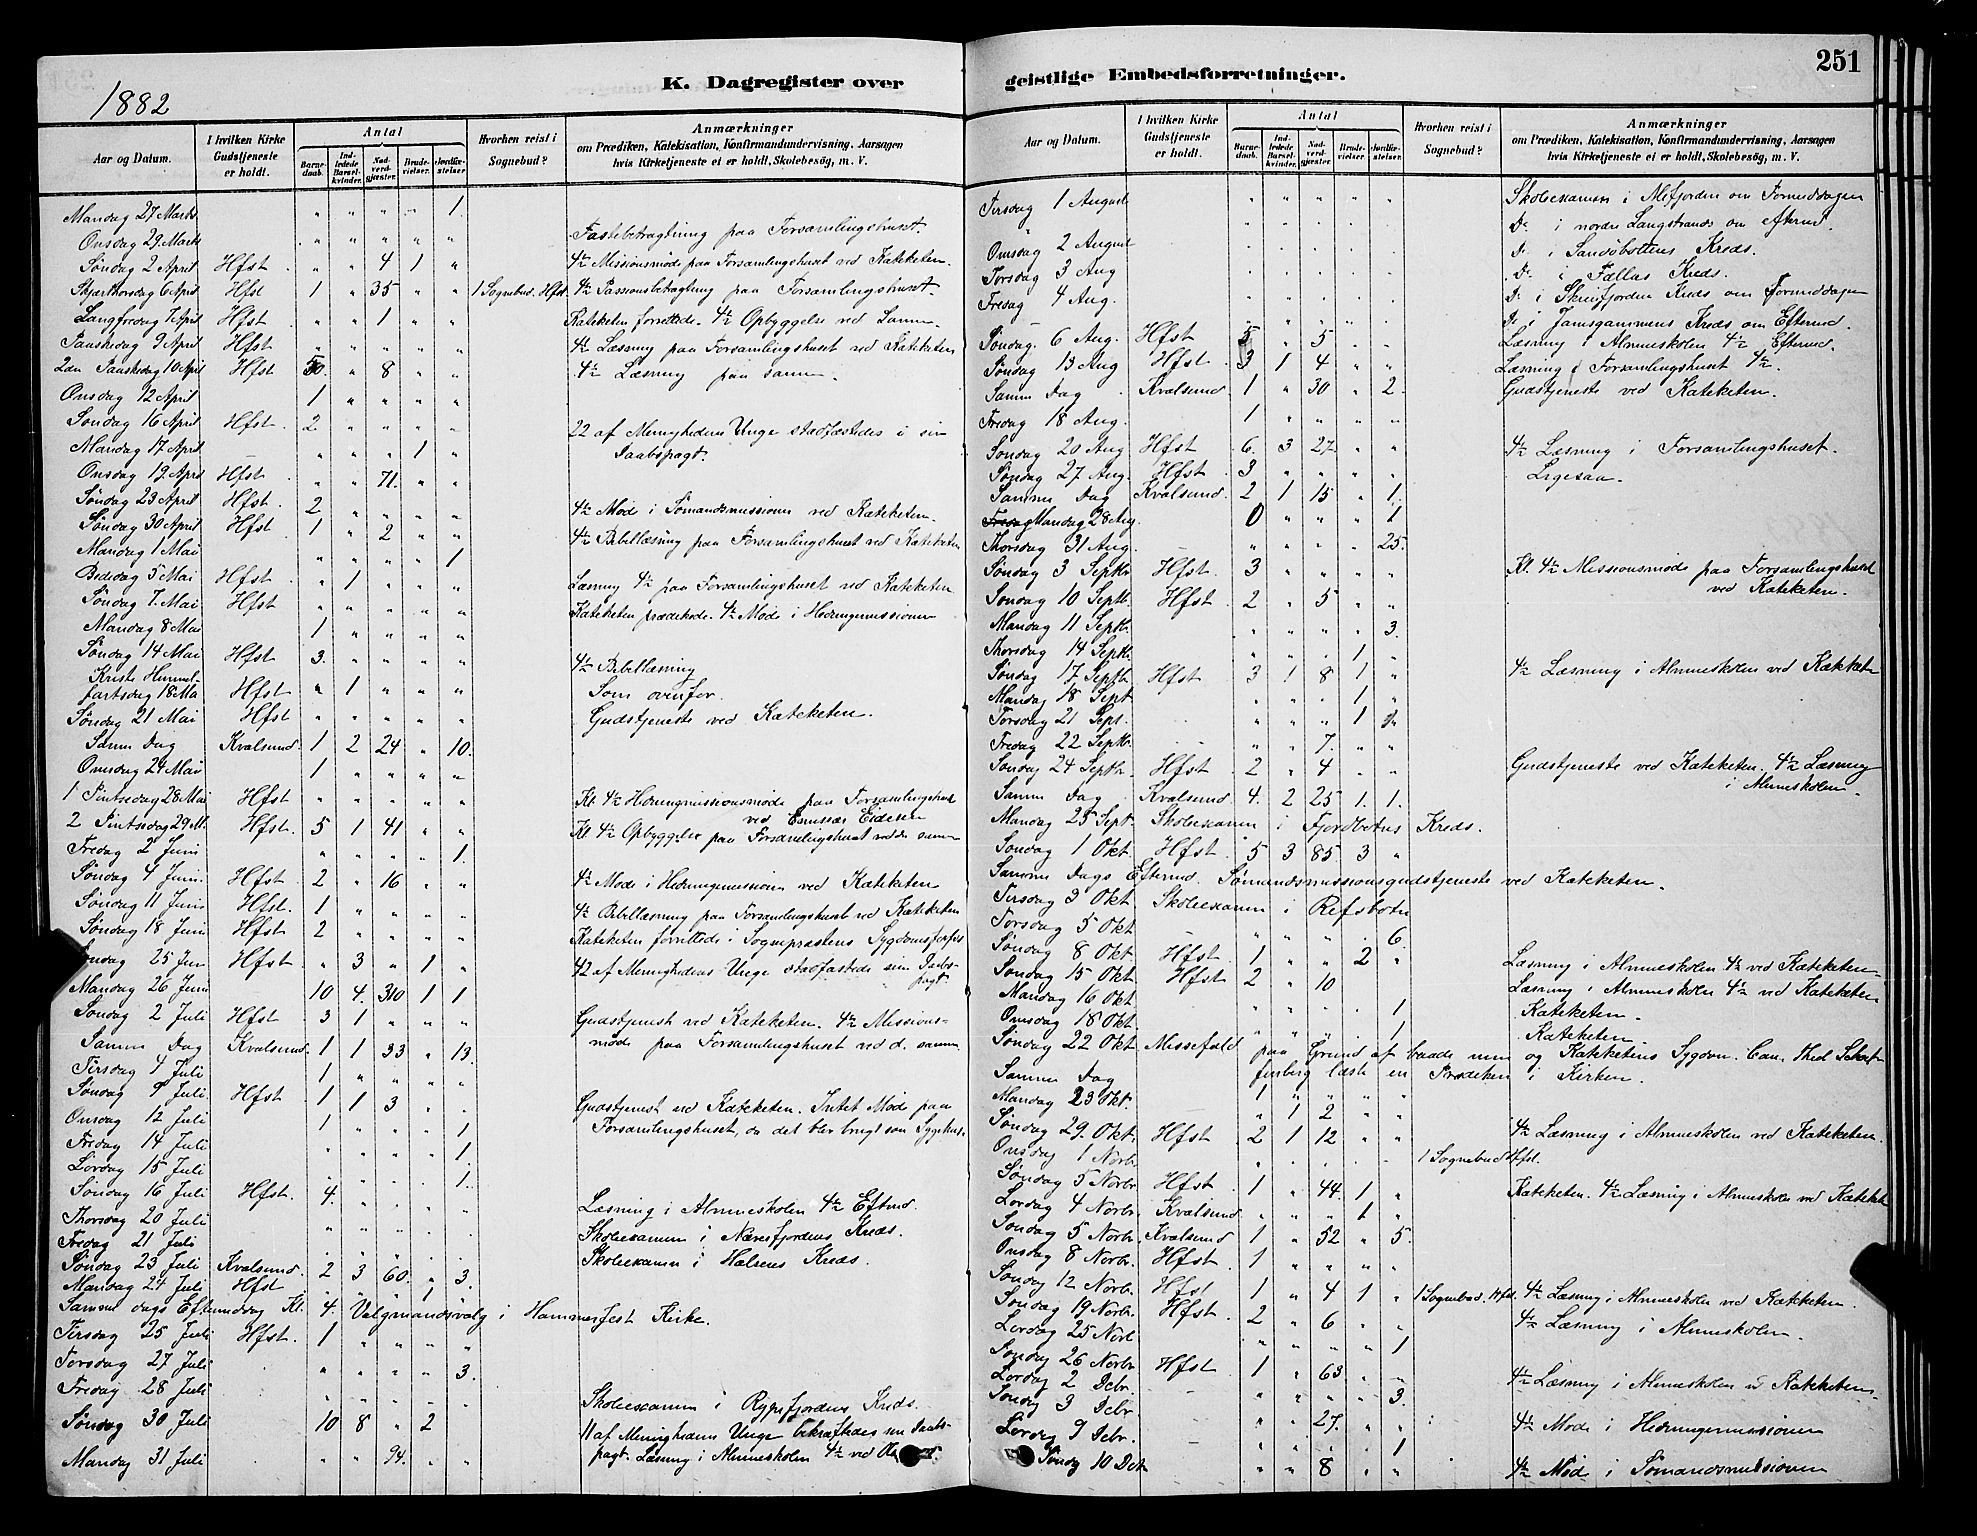 K. Dagregister over
1882
Aar og Datum. I hvilken Kirke Gudstjeneste er holdt. Antal Barnedaab. Indledede Barselkvinder. Nadverdgjæster. Brudevielser. Jordfæstelser Hvorhen reist i Sognebud? Anmærkninger om Prædiken, Katekisation, Konfirmandundervisning, Aarsagen hvis Kirketjeneste ei er holdt, Skolebesög, m. V.
Mandag 27 Marts " " " " 1.
Onsdag 29 Marts " " " " " Fastebetragtning paa Forsamlingshuset.
Søndag 2 April Hfst " " 4 1 " 4½ Missionsmøde paa Forsamlingshuset ved Kateketen.
Skjærthorsdag 6 April Hfst 1 " 35 " " 1 Sognebud. Hfst. 4½ Passionsbetragtning paa Forsamlingshuset.
Langfredag 7 April Hfst " " 1 " " Kateketen forrettede. 4½ Opbyggelse ved Samme.
Paaskedag 9 April Hfst " " " " " 4½ Læsning paa Forsamlingshuset ved Kateketen
2den Paaskedag 10 April Hfst 8 " " 4½ Læsning paa samme.
Onsdag 12 April 1 " " " "
Søndag 16 April Hfst. 2. " " " " 22 af Menighedens Unge stadfæstedes i sin
Daabspagt.
Mandag 17 April " " " 1 "
Onsdag 19 April Hfst. " " 71. " "
Søndag 23 April Hfst. 2 " " " " 4½ Møde i Sømandsmissionen ved Kateketen.
Søndag 30 April Hfst 1 " 2 " " 4½ Bibellæsning paa Forsamlingshuset ved Kateketen
Mandag 1 Mai " " " " 1
Bededag 5 Mai Hfst " 1 " " " Læsning 4½ paa Forsamlingshuset ved Kateketen
Søndag 7. Mai Hfst " " " " " Kateketen prædikede. 4½ Møde i Hedningemissionen
Mandag 8 Mai 1 " " " "
Søndag 14 Mai Hfst 3. " " " " 4½ Bibellæsning
Kristi Himmel-
fartsdag 18 Ma Hfst " 1 " " " Som ovenfor.
Søndag 21 Mai Hfst " " " " " Gudstjeneste ved Kateketen.
Samme Dag Kvalsund. 1 2 24 " 10.
Onsdag 24 Mai 1 " " " "
1 Pintsedag 28 Mai Hfst " " " " " Kl. 4½ Hedningmissionsmøde paa Forsamlingshuset
ved Emissær Eidesen
2 Pintsedag 29 M. Hfst. 5 1 41 " " Kl 4½ Opbyggelse paa Forsamlingshuset ved den samme
Fredag 2 Juni " " " " 1.
Søndag 4 Juni. Hfst. 2 " 16 " " 4½ Møde i Hedningemissionen ved Kateketen
Søndag 11 Juni Hfst. 1 " " " " 4½ Bibellæsning paa Forsamlingshuset ved Kateketen
Søndag 18 Juni Hfst 2 " " " " Kateketen forrettede i Sognepræstens Sygdomsforfald
Søndag 25 Jun Hfst. " 3 " 1 " 42 af Menighedens Unge stadfæstede sin Daabs-
pagt.
Mandag 26 Juni 10 4. 310 1 1
Søndag 2 Juli Hfst 3 1 " " " Gudstjenest ved Kateketen. 4½ Missions-
Samme Dag Kvalsund. 1 1 33 " 13. møde paa Forsamlingshuset ved d. samme.
Tirsdag 4 Juli 1 " " " "
Søndag 9 Juli Hfst. 1 1 3 " " Gudstjenest ved Kateketen. Intet Møde paa
Onsdag 12 Juli 1 " " " 1 Forsamlingshuset, da det blev brugt som Sygehus.
Fredag 14 Juli " " " " 1
Lørdag 15 Juli " " " " 1.
Søndag 16 Juli Hfst. 4. " " " " Læsning i Almueskolen 4½ Eftmd.
Thorsdag 20 Juli " " " " " Skoleexamen i Næresfjordens Kreds.
Fredag 21 Juli " " " " " Skoleexamen i Hælsens Kreds.
Søndag 23 Juli Kvalsund. 2 3 60. " 3.
Mandag 24 Juli Hfst " " " 1 "
Samme dags Eftermiddag Kl. 4. Valgmandsvalg i Hammerfest Kirke.
Tirsdag 25 Juli Hfst. 1 " " " "
Torsdag 27 Juli " " " " 3.
Fredag 28 Juli " " " " " Skoleexamen i Rypefjordens Kreds.
Søndag 30 Juli 10 8 " 2 11 af Menighedens Unge bekræftedes sin Daabs-
Mandag 31 Juli " " 94. " " pagt. Læsning i Almueskolen 4½ ved
geistlige Embedsforretninger.
251
Aar og Datum. I hvilken Kirke Gudstjeneste er holdt. Antal Barnedaab. Indledede Barselkvinder. Nadverdgjæster. Brudevielser. Jordfæstelser. Hvorhen reist i Sognebud? Anmærkninger om Prædiken, Katekisation, Konfirmandundervisning, Aarsagen hvis Kirketjeneste ei er holdt, Skolebesög, m. V.
Tirsdag 1 August " " " " " Skoleexamen i Alefjorden om Formiddagen
" " " " " Do i nordre Langstrands om Efterm.
Onsdag 2 August " " " " " Do i Sandsbottens Kreds.
Torsdag 3 Aug " " " " " Do i Fallas Kreds.
Fredag 4 Aug. " " " " " Do i Skreifjorden Kreds om Formiddagen
Do i Jansgammens Kreds om Efterm.
Søndag. 6 Aug. Hfst 5 " 5 " " Læsning i Almueskolen 4½ Efterm.
Søndag 13 Aug Hfst. 3 1 4 " " Læsning i Forsamlingshuset 4½.
Samme Dag Kvalsund. 1 " 30 " 2. Gudstjeneste ved Kateketen.
Fredag 18 Aug. 1 " " " "
Søndag 20 Aug Hfst. 6. 3 27. " " 4½ Læsning i Forsamlingshuset.
Søndag 27 Aug. Hfst. 3 " " " " Ligesaa.
Samme Dag Kvalsund. 2 1 15 " 1.
Fredag Mandag 28 Aug. 0 " " " 1
Thorsdag 31 Aug. " " " " 25.
Søndag 3 Septbr Hfst. 3 " " " " Kl. 4½ Missionsmøde paa Forsamlingshuset
ved Kateketen.
Søndag 10 Septbr. Hfst. 2 " 5 " "
Mandag 11 Septbr. " " " " 3.
Thorsdag 14 Septbr. " " " 1 "
Søndag 17 Septbr Hfst 3 1 8 1 " 4½ Læsning i Almueskolen ved Kateketen
Mandag 18 Sept " " " 1 "
Torsdag 21 Sept. " " " 1
Fredag 22 Septbr. " " 7. " "
Søndag 24 Septbr. Hfst 2 " 4 " " Gudstjeneste ved Kateketen. 4½ Læsning
i Almueskolen.
Samme Dag Kvalsund. 4. 2 25 1. 1.
Mandag 25 Sept. Skoleexamen i Fjordbotns Kreds.
Søndag 1 Okt. Hfst. 5 3 85 3 "
Samme Dags Efterm. Sømandsmissionsgudstjeneste ved Kateketen.
Tirsdag 3 Okt. Skoleexamen i Refsbotn
Torsdag 5 Okt " " " " 6.
Søndag 8 Okt. Hfst. 1 " " 2 " Læsning i Almueskolen 4½ ved Kateketen
Søndag 15 Okt. Hfst 2 " 10 Læsning i Almueskolen 4½ ved Kateketen
Mandag 16 Okt " " " " 1 Kateketen.
Onsdag 18 Okt. " " " " 1 Kateketen.
Søndag 22 Okt. Missefald paa Grund af baade min og Kateketens Sygdom. Can. theol
Samme Dag læste en Prædiken i Kirken.
Mandag 23 Okt. 1 " " " "
" 1 2 " "
Søndag 29. Okt. Hfst 2 1 12 " " 4½ Læsning i Almueskolen ved Kateketen.
Onsdag 1 Novbr. " " " " " 1 Sognebud Hfst.
Søndag 5 Novbr. Hfst. 1 " 44. 1 " Kateketen. 4½ Læsning i Almueskolen ved Kateket
Lørdag 4 Novbr. Kvalsund. " " " 1 "
Søndag 5 Novbr. Kvalsund 1 " 52 " 5.
Onsdag 8 Novbr. Hfst. 1 " " " "
Søndag 12 Novbr. Hfst 1 " 4 1 " 1 Sognebud. Hfst. 4½ Læsning i Almueskolen ved Kateketen.
Søndag 19 Novbr. Hfst. 2 " 6 " " 4½ Læsning i Almueskolen.
Lørdag 25 Novb " " " " 1
Søndag 26 Novbr. Hfst. 1 " 63 " " 4½ Læsning i Almueskolen v Kateketen.
Lørdag 2 Debr. " " " " 3.
Søndag 3 Debr. " " 27. " " 4½ Møde i Hedningemissionen
Lørdag 9 Debr. " " " " 1
Søndag 10 Deb " " 8 " " 4½ Møde i Sømandsmissionen